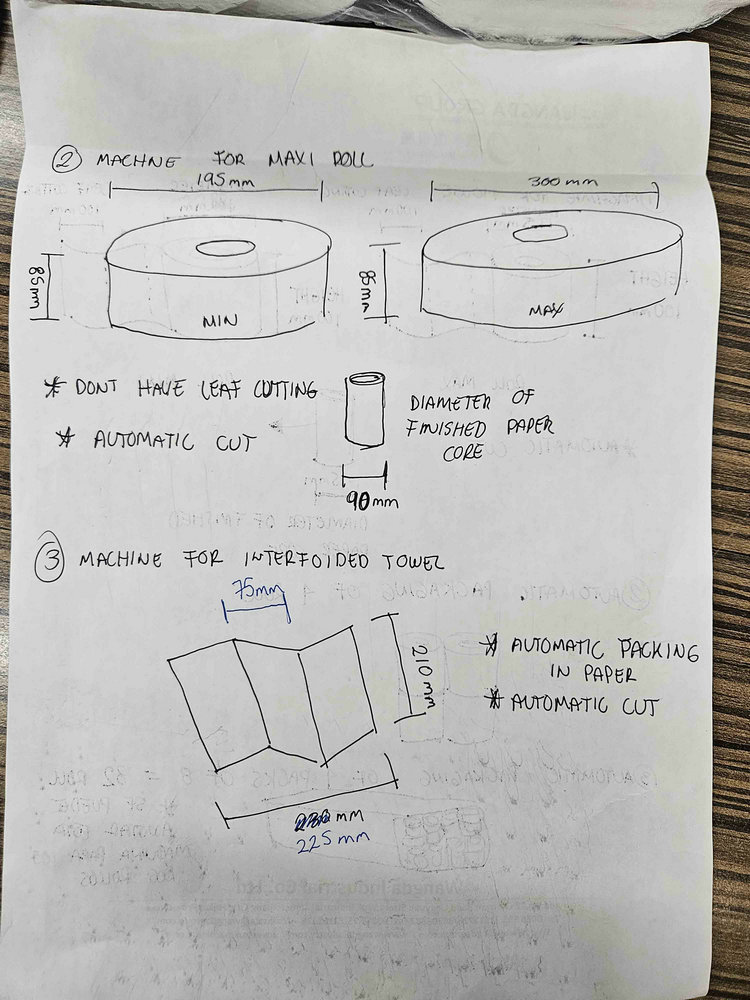 ② MACHINE FOR MAXI ROLL
195mm
300mm
85mm
85mm
MIN
MAX
* DONT HAVE LEAF CUTTING
* AUTOMATIC CUT
DIAMETER OF
FINISHED PAPER
CORE
90mm
③ MACHINE FOR INTERFOIDED TOWEL
75mm
210mm
* AUTOMATIC PACKING
IN PAPER
* AUTOMATIC CUT
mm
225mm